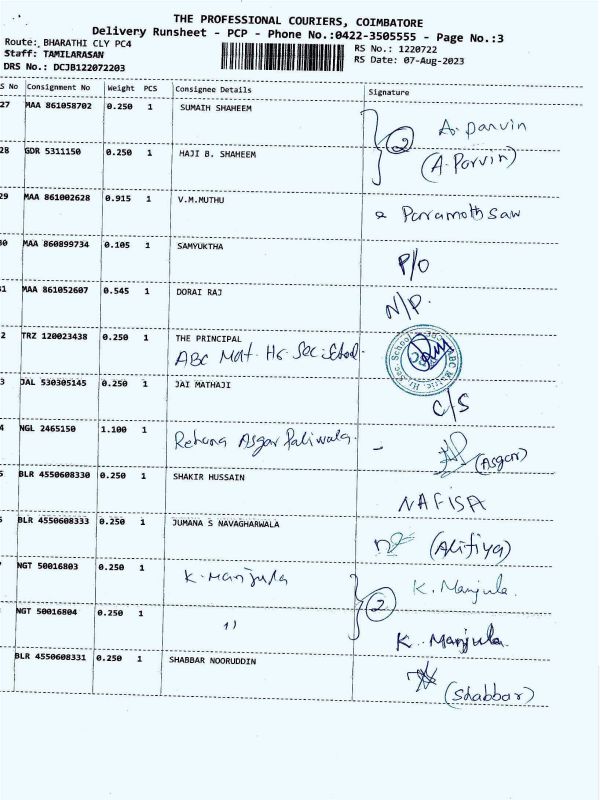 THE PROFESSIONAL COURIERS, COIMBATORE
Delivery Runsheet - PCP - Phone No.:0422-3505555 - Page No.:3
Route: BHARATHI CLY PC4 RS No.: 1220722
Staff: TAMILARASAN RS Date: 07-Aug-2023
DRS No.: DCJB122072203
S No Consignment No Weight PCS Consignee Details Signature
27 MAA 861058702 0.250 1 SUMAIH SHAHEEM A. parvin
2
28 GDR 5311150 0.250 1 HAJI B. SHAHEEM (A.Parvin)
29 MAA 861002628 0.915 1 V.M.MUTHU
30 MAA 860899734 0.105 1 SAMYUKTHA P/O
31 MAA 861052607 0.545 1 DORAI RAJ N/P.
2 TRZ 120023438 0.250 1 THE PRINCIPAL
ABC Mat. Hr Sec. School.
3 JAL 530305145 0.250 1 JAI MATHAJI C/S
4 NGL 2465150 1.100 1 Rehana Asgar Paliwala. - (Asgar)
5 BLR 4550608330 0.250 1 SHAKIR HUSSAIN NAFISA
BLR 4550608333 0.250 1 JUMANA S NAVAGHARWALA (Alifiya)
NGT 50016803 0.250 1 K. Manjula K. Manjula.
2
NGT 50016804 0.250 1 11 K. Manjula.
BLR 4550608331 0.250 1 SHABBAR NOORUDDIN (Shabbar)